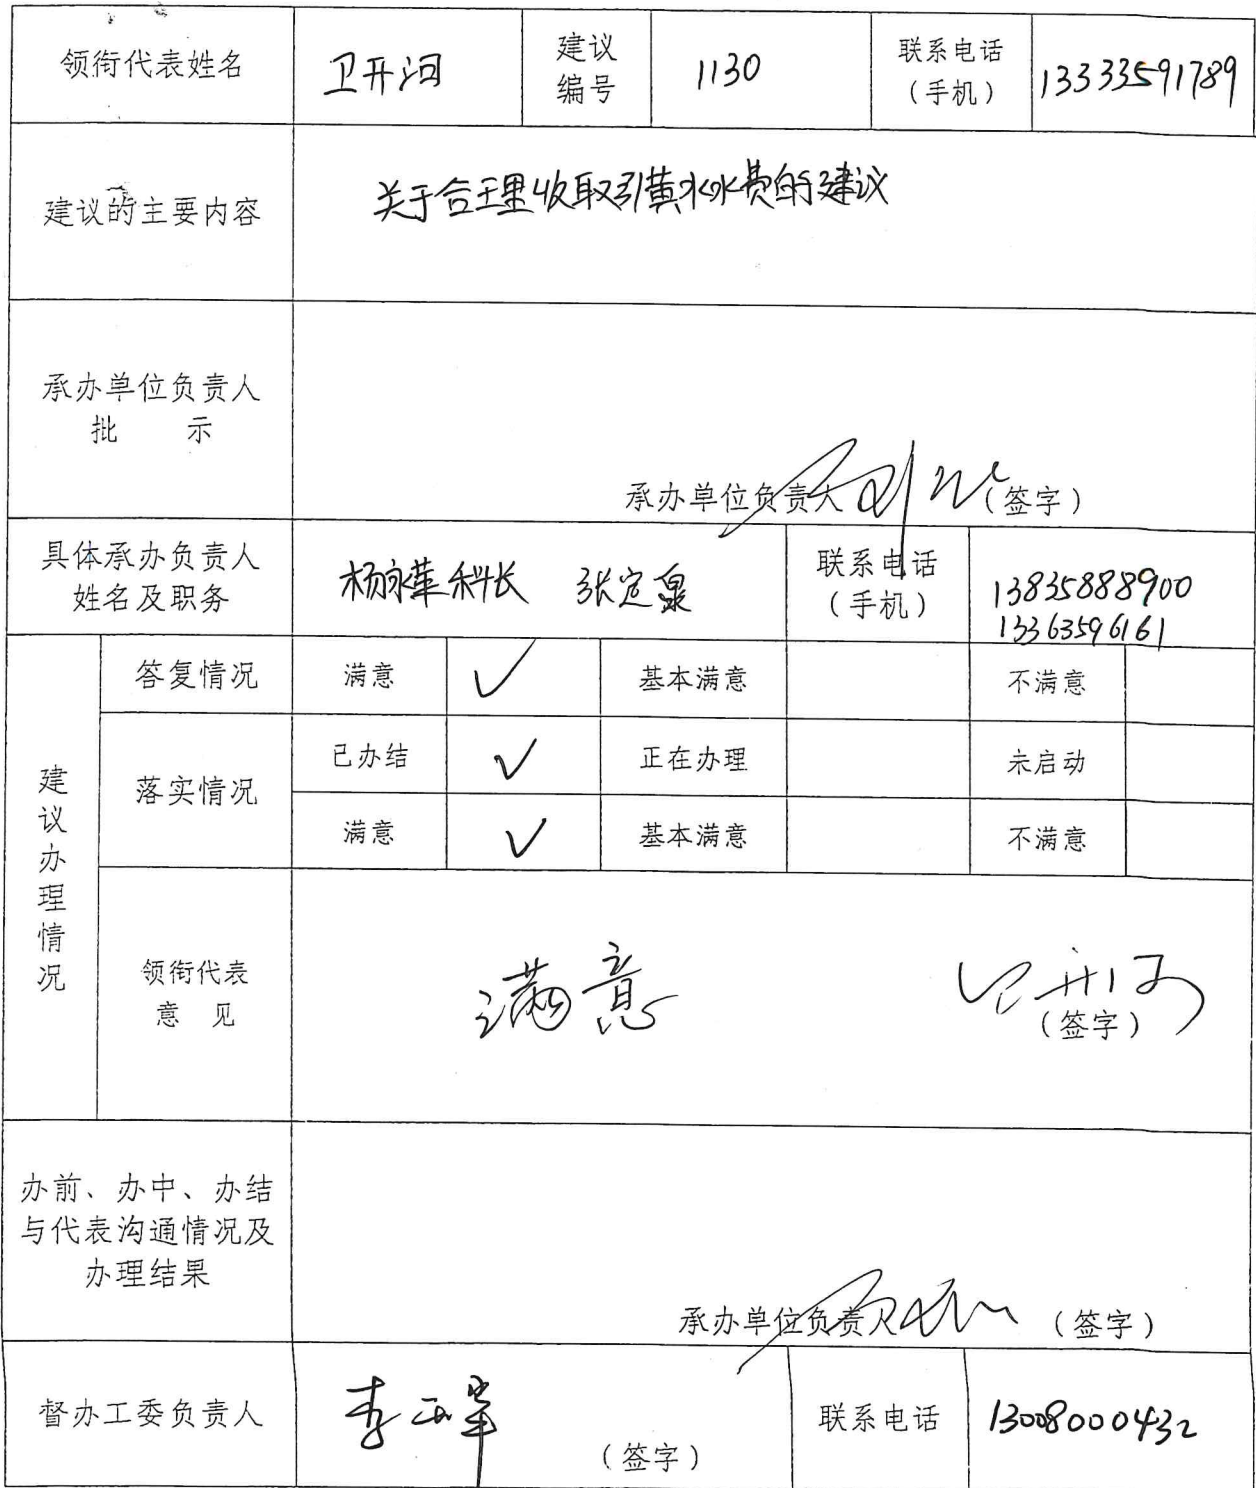 领衔代表姓名 卫开泪 建议编号 1130 联系电话（手机） 13333591789
建议的主要内容 关于合理收取引黄水水费的建议
承办单位负责人
批 示
承办单位负责人 （签字）
具体承办负责人姓名及职务 杨永革 科长 张定泉 联系电话（手机） 13835888900
13363596161
建议办理情况
答复情况 满意 ✓ 基本满意 不满意
落实情况 已办结 ✓ 正在办理 未启动
满意 ✓ 基本满意 不满意
领衔代表
意 见
满意
（签字）
办前、办中、办结
与代表沟通情况及
办理结果
承办单位负责人 （签字）
督办工委负责人 （签字） 联系电话 13008000432